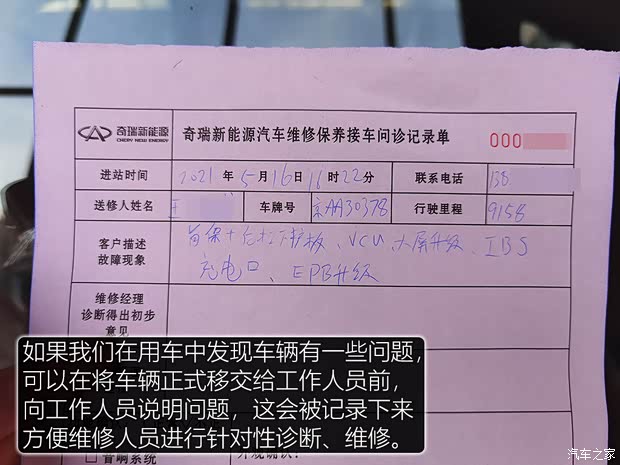 奇瑞新能源 奇瑞新能源汽车维修保养接车问诊记录单 000
CHERY NEW ENERGY
进站时间 2021年5月16日16时22分 联系电话 138
送修人姓名 王 车牌号 行驶里程 9158
客户描述 首保+ 下护板、VCU、大屏升级、IBS
故障现象 充电口、EPB升级
维修经理
诊断得出初步
意见
如果我们在用车中发现车辆有一些问题，
可以在将车辆正式移交给工作人员前，
向工作人员说明问题，这会被记录下来
方便维修人员进行针对性诊断、维修。
音响系统 外观确认：
汽车之家